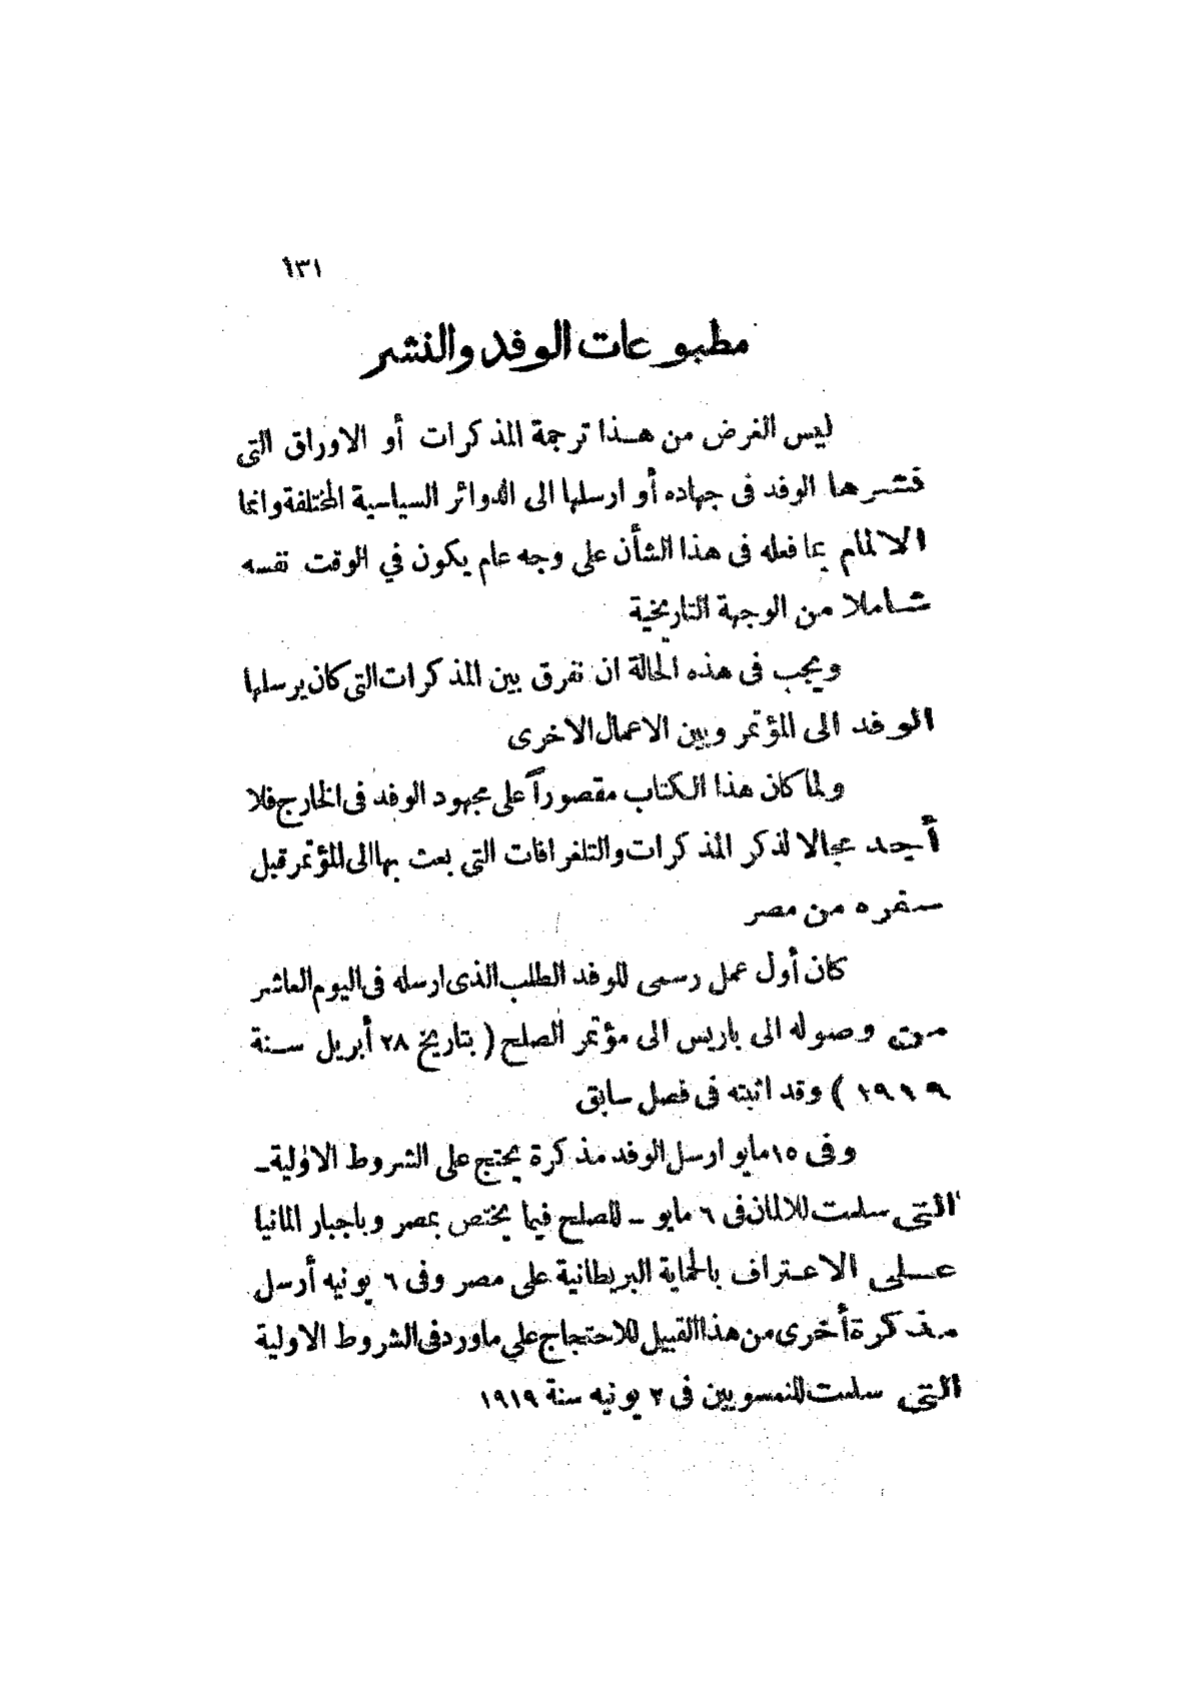 ١٣١
مطبوعات الوفد والنشر
ليس الغرض من هذا ترجمة المذكرات أو الاوراق التى
نشرها الوفد فى جهاده أو ارسلها الى الدوائر السياسية المختلفة وانما
الالمام بما فعله فى هذا الشأن على وجه عام يكون في الوقت نفسه
شاملا من الوجهة التاريخية
ويجب فى هذه الحالة ان نفرق بين المذكرات التى كان يرسلها
الوفد الى المؤتمر وبين الاعمال الاخرى
ولما كان هذا الكتاب مقصوراً على مجهود الوفد فى الخارج فلا
أجد مجالا لذكر المذكرات والتلغرافات التى بعث بها الى المؤتمر قبل
سفره من مصر
كان أول عمل رسمى للوفد الطلب الذى ارسله فى اليوم العاشر
من وصوله الى باريس الى مؤتمر الصلح ( بتاريخ ٢٨ أبريل سنة
١٩١٩ ) وقد اثبته فى فصل سابق
وفى ١٥ مايو ارسل الوفد مذكرة يحتج على الشروط الاولية ــ
التى سلمت للالمان فى ٦ مايو ــ للصلح فيما يختص بمصر وباجبار المانيا
على الاعتراف بالحماية البريطانية على مصر وفى ٦ يونيه أرسل
مذكرة أخرى من هذا القبيل للاحتجاج علي ماورد فى الشروط الاولية
التى سلمت للنمسويين فى ٢ يونيه سنة ١٩١٩